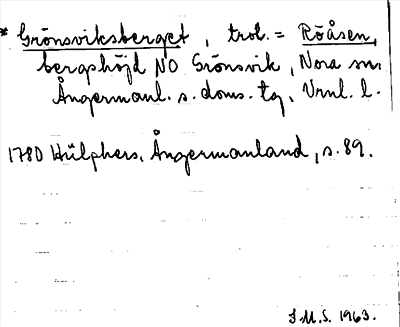 * Grönsviksberget, trol. = Röåsen,
bergshöjd NO Grönsvik, Nora sn,
Ångermanl. s. doms. tg, Vrnl. l.
1780 Hülphers, Ångermanland, s. 89.
J.M.S. 1963.